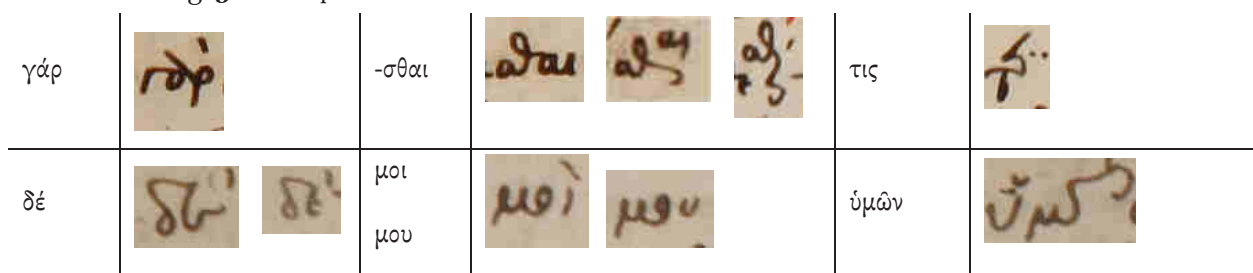 γάρ γὰρ -σθαι σθαι τις
δέ δὲ δὲ μοι μοὶ μου ὑμῶν
μου